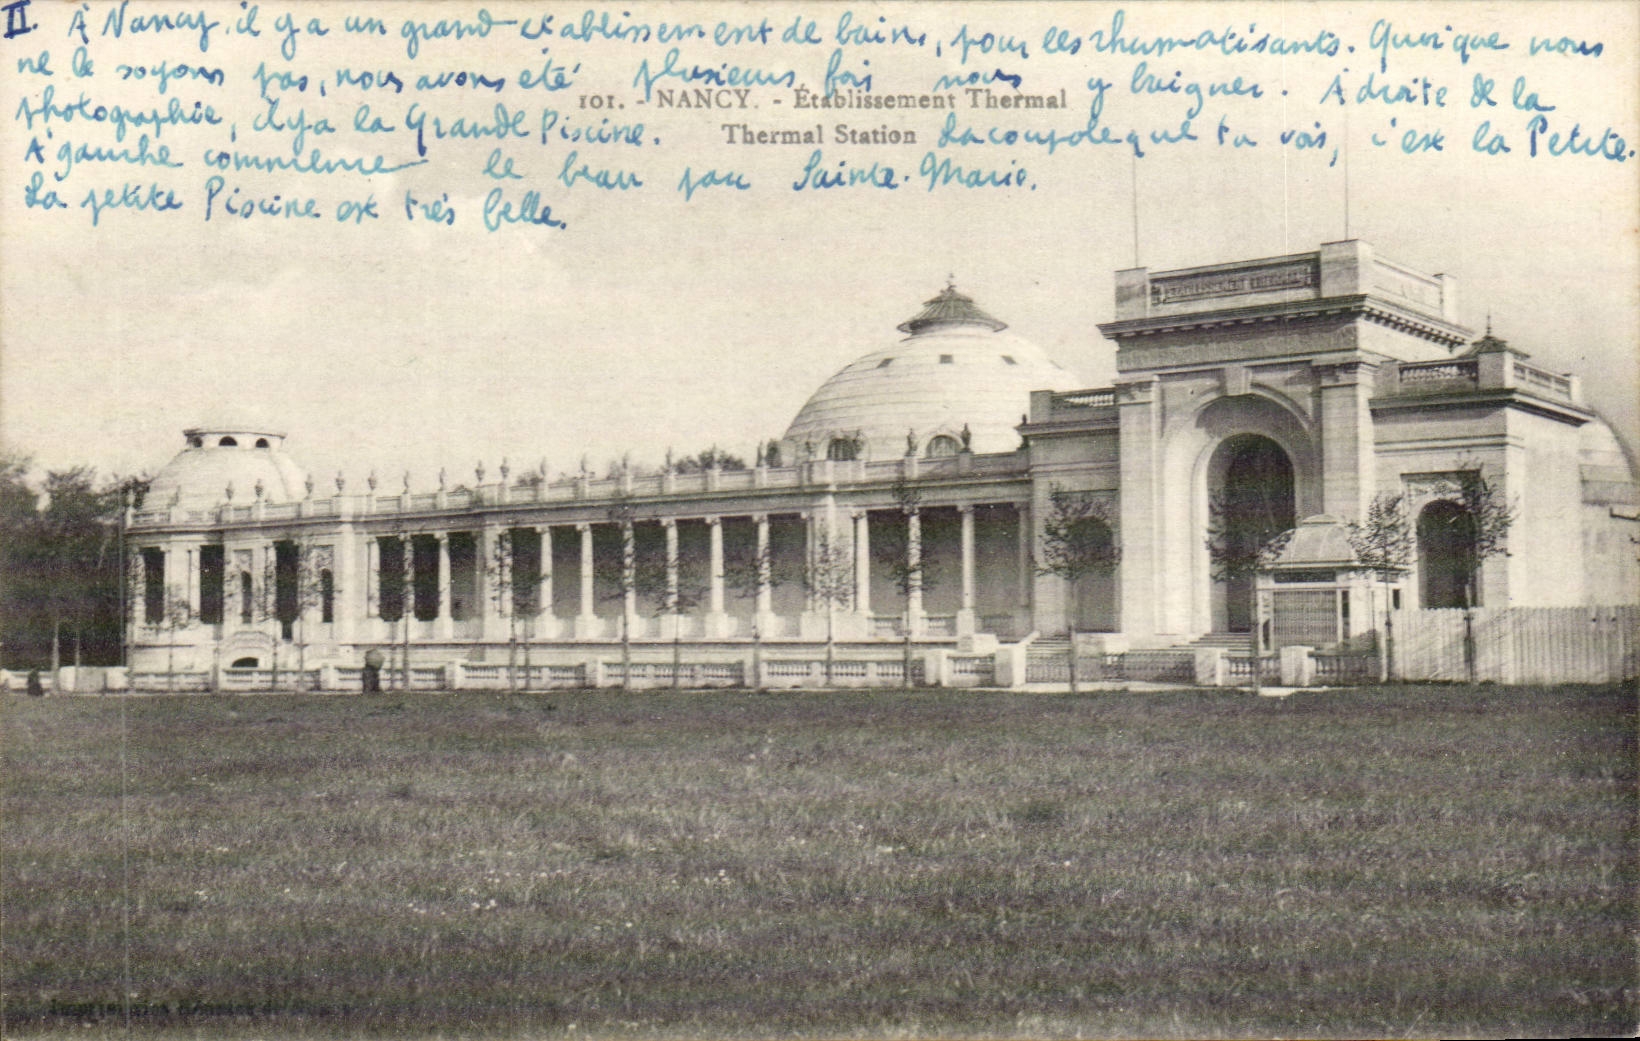 II. À Nancy, il y a un grand établissement de bains, pour les rhumatisants. Quoique nous
ne le soyons pas, nous avons été plusieurs fois nous y baigner. À droite de la
101. - NANCY. - Établissement Thermal
photographie, il y a la Grande Piscine. La coupole que tu vois, c'est la Petite.
Thermal Station
À gauche commence le beau parc Sainte-Marie.
La petite Piscine est très belle.
ÉTABLISSEMENT THERMAL
Imprimeries Réunies de Nancy